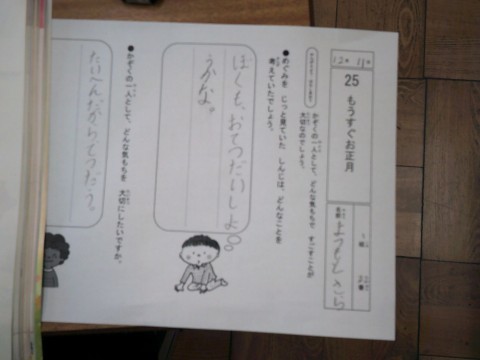 12月 11日
25 もうすぐお正月
1組 22番
名前 まつもと そら
かぞくの一人として、どんな気もちで すごすことが
大切なのでしょう。
●めぐみを じっと見ていた しんじは、どんなことを
考えていたでしょう。
ぼくも、おてつだいしよ
うかな。
●かぞくの一人として、どんな気もちを 大切にしたいですか。
たいへんだからてつだう。